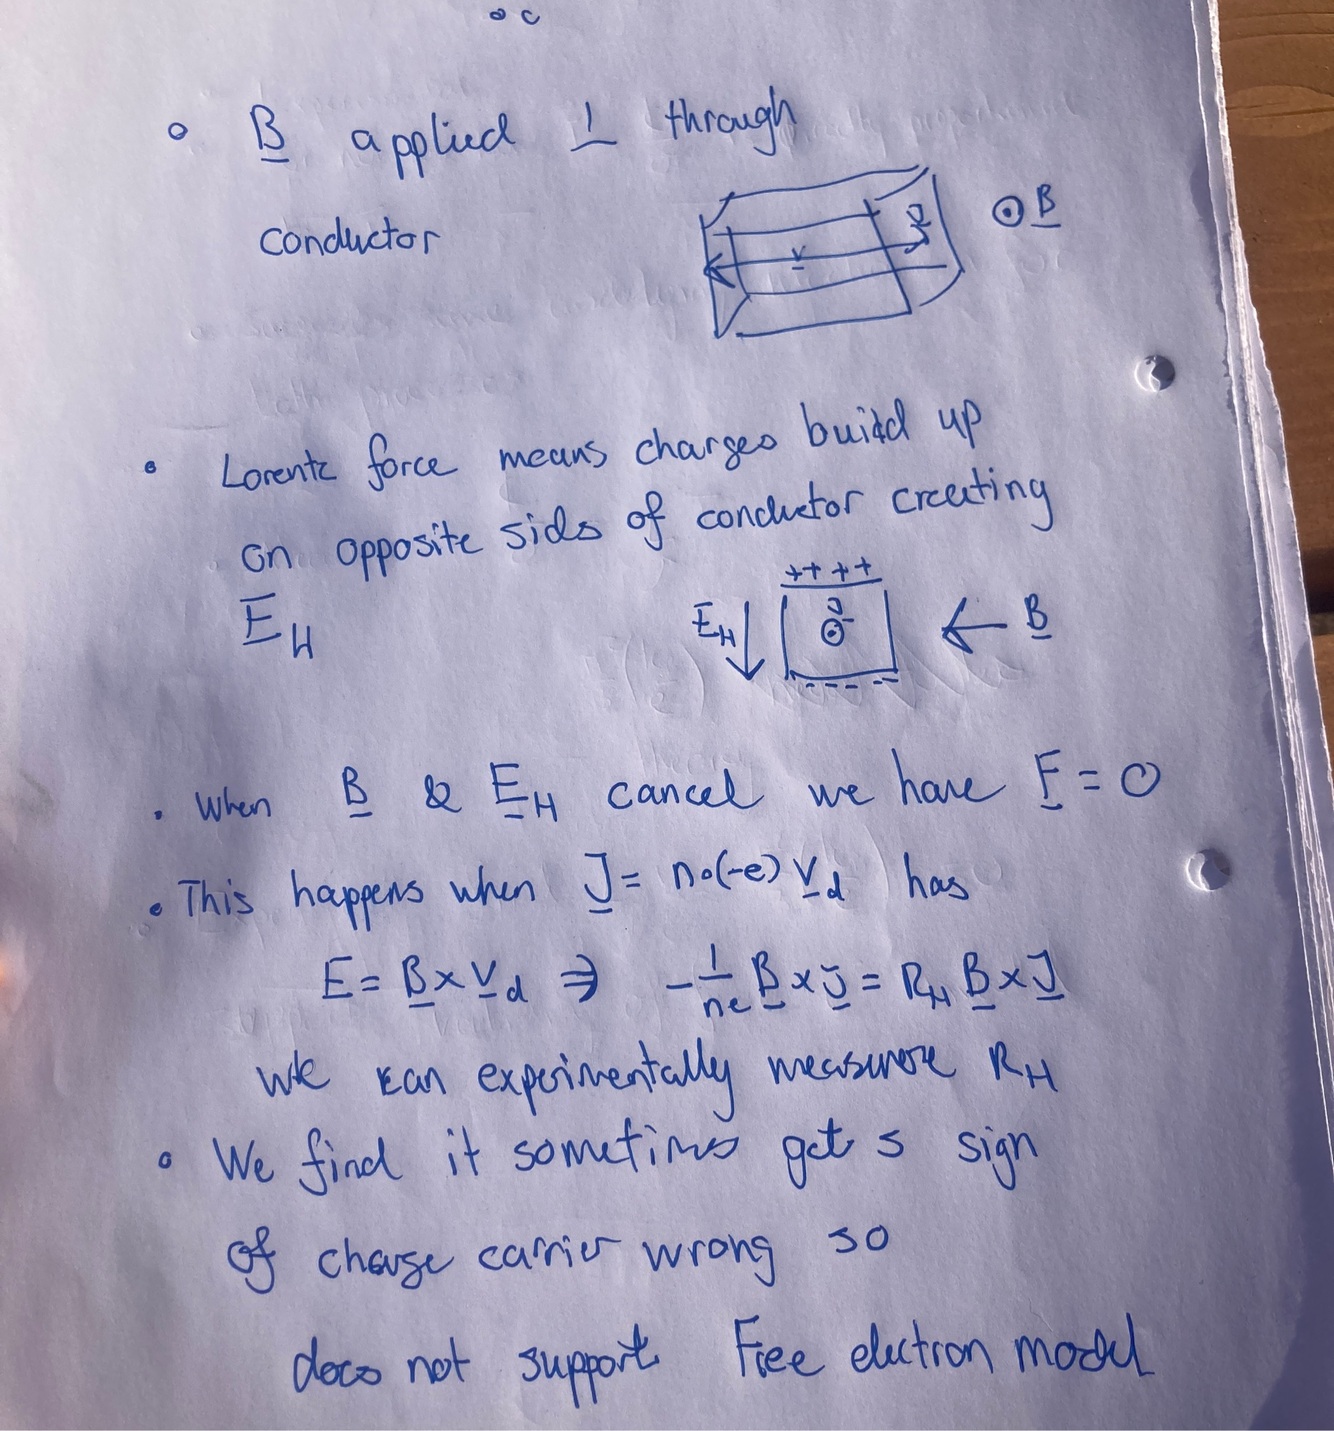 ∘ c
∘ B applied ⊥ through
conductor
J
v
⊙ B
• Lorentz force means charges build up
on opposite sids of conductor creating
E_H
++++
E_H ↓
J
⊙
← B
----
• When B & E_H cancel we have F = 0
• This happens when J = n·(-e) v_d has
E = B × v_d ⇒ -1/ne B × j = R_H B × J
we can experimentally measure R_H
∘ We find it sometimes gets sign
of charge carrier wrong so
does not support Free electron model